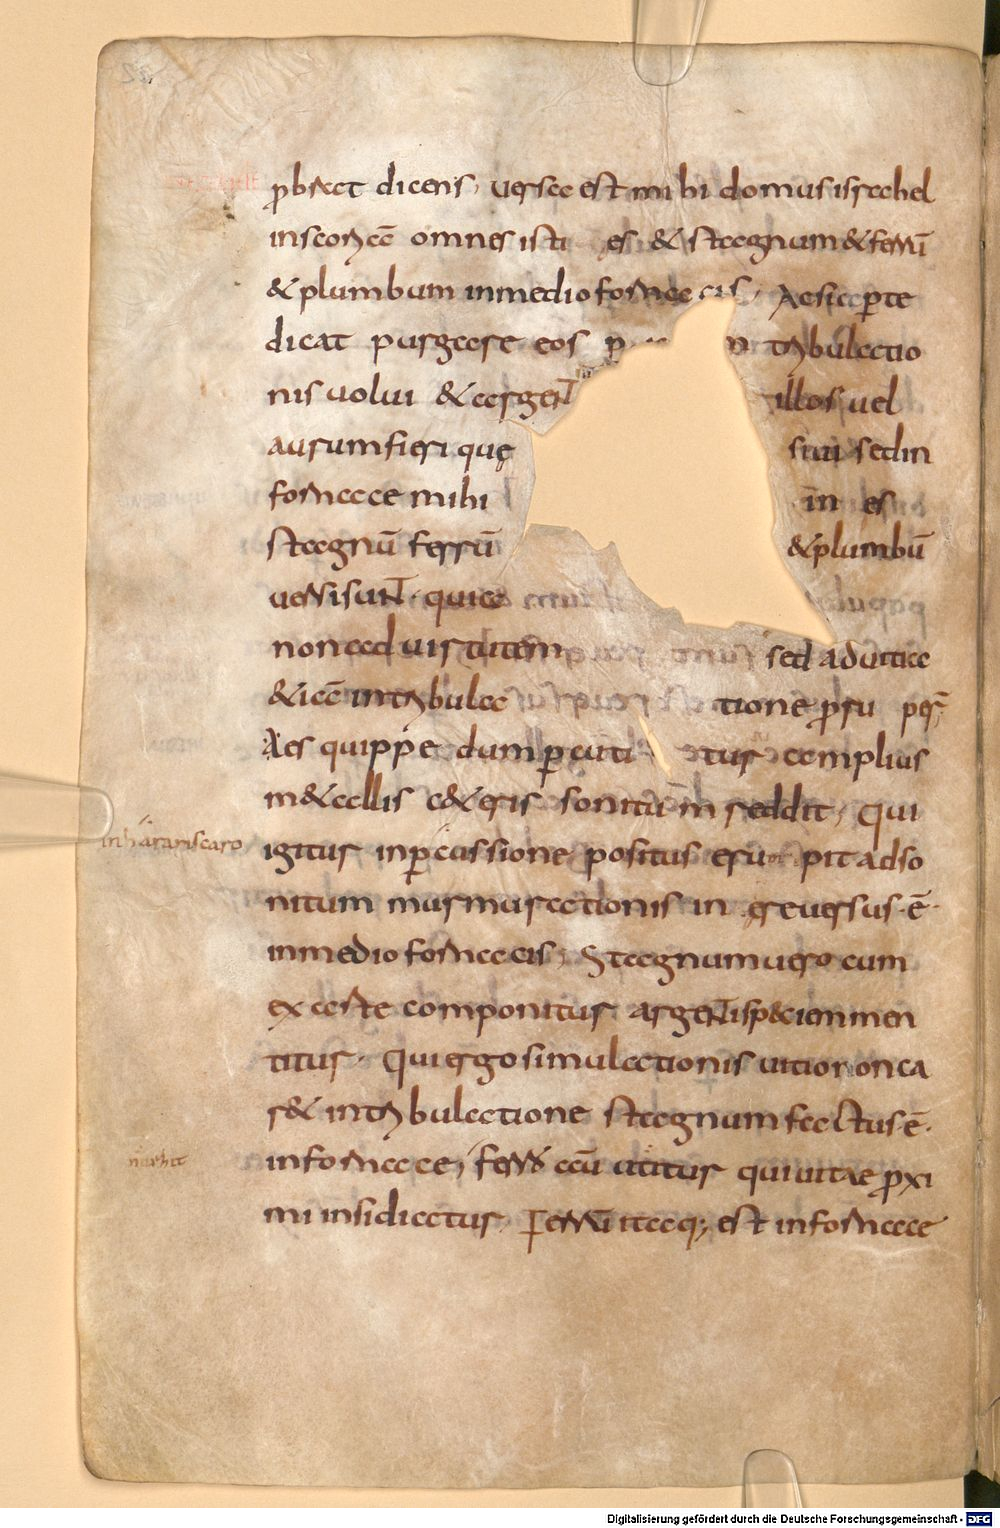 ꝓbat dicens, uersa est mihi domus israhel
inscoriā omnes isti es & stagnum & ferrū
& plumbum inmedio fornacis, Ac si aperte
dicat purgare eos p tribulatio
nis uolui & argenT illos uel
aurum fieri que siui sed in
fornace mihi in es
stagnū ferrū & plumbū
uersi sunT. quia
non ad uirtutem sed aduitia
& iā intribula tione ꝓru per̄
Aes quippe dum ꝑcuti tur amplius
m&allis c&eris sonitum reddit, Qui
igitur inꝑcussione positus erum pit adso
nitum murmurationis in ęre uersus ē
inmedio fornacis, Stagnum uero cum
ex arte componitur argenTi speciem men
titur. Qui ergo simulationis uitio non ca
r& intribulatione stagnum factus ē.
infornace, ferro aū utitur qui uitae ꝓxi
mi insidiatur, Ferrū itaq; est infornace
inhárariscaro